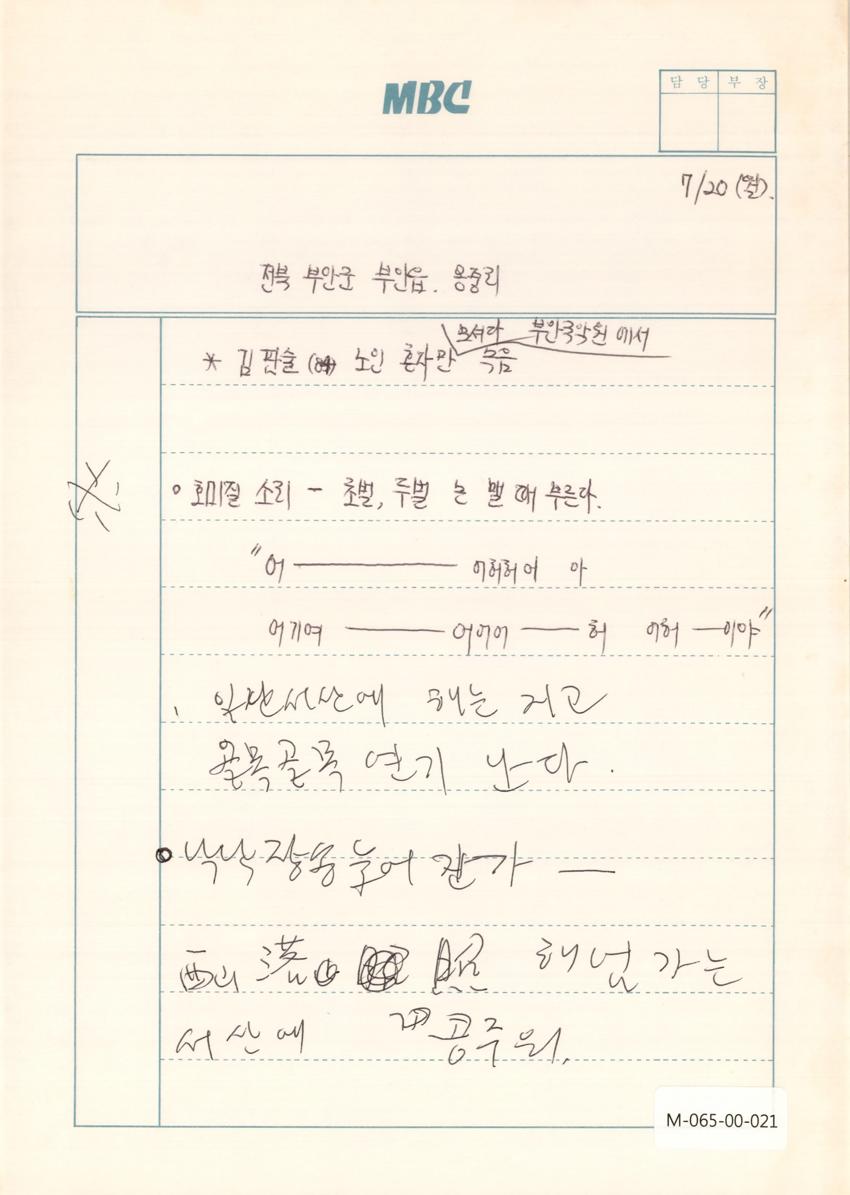 MBC
담 당 부 장
7/20 (월).
전북 부안군 부안읍. 용중리
모셔다 부안국악원에서
* 김판술 노인 혼자만 녹음
호미질 소리 - 초벌, 두벌 논 맬 때 부른다.
"어 ──── 이허허어 아
어기여 ─── 어어어 ── 허 이허 ─ 이야"
일락서산에 해는 지고
골목골목 연기 난다.
낙낙장송 늘어 진 가 ─
西山 落日 照 해 넘어 가는
서산에
M-065-00-021